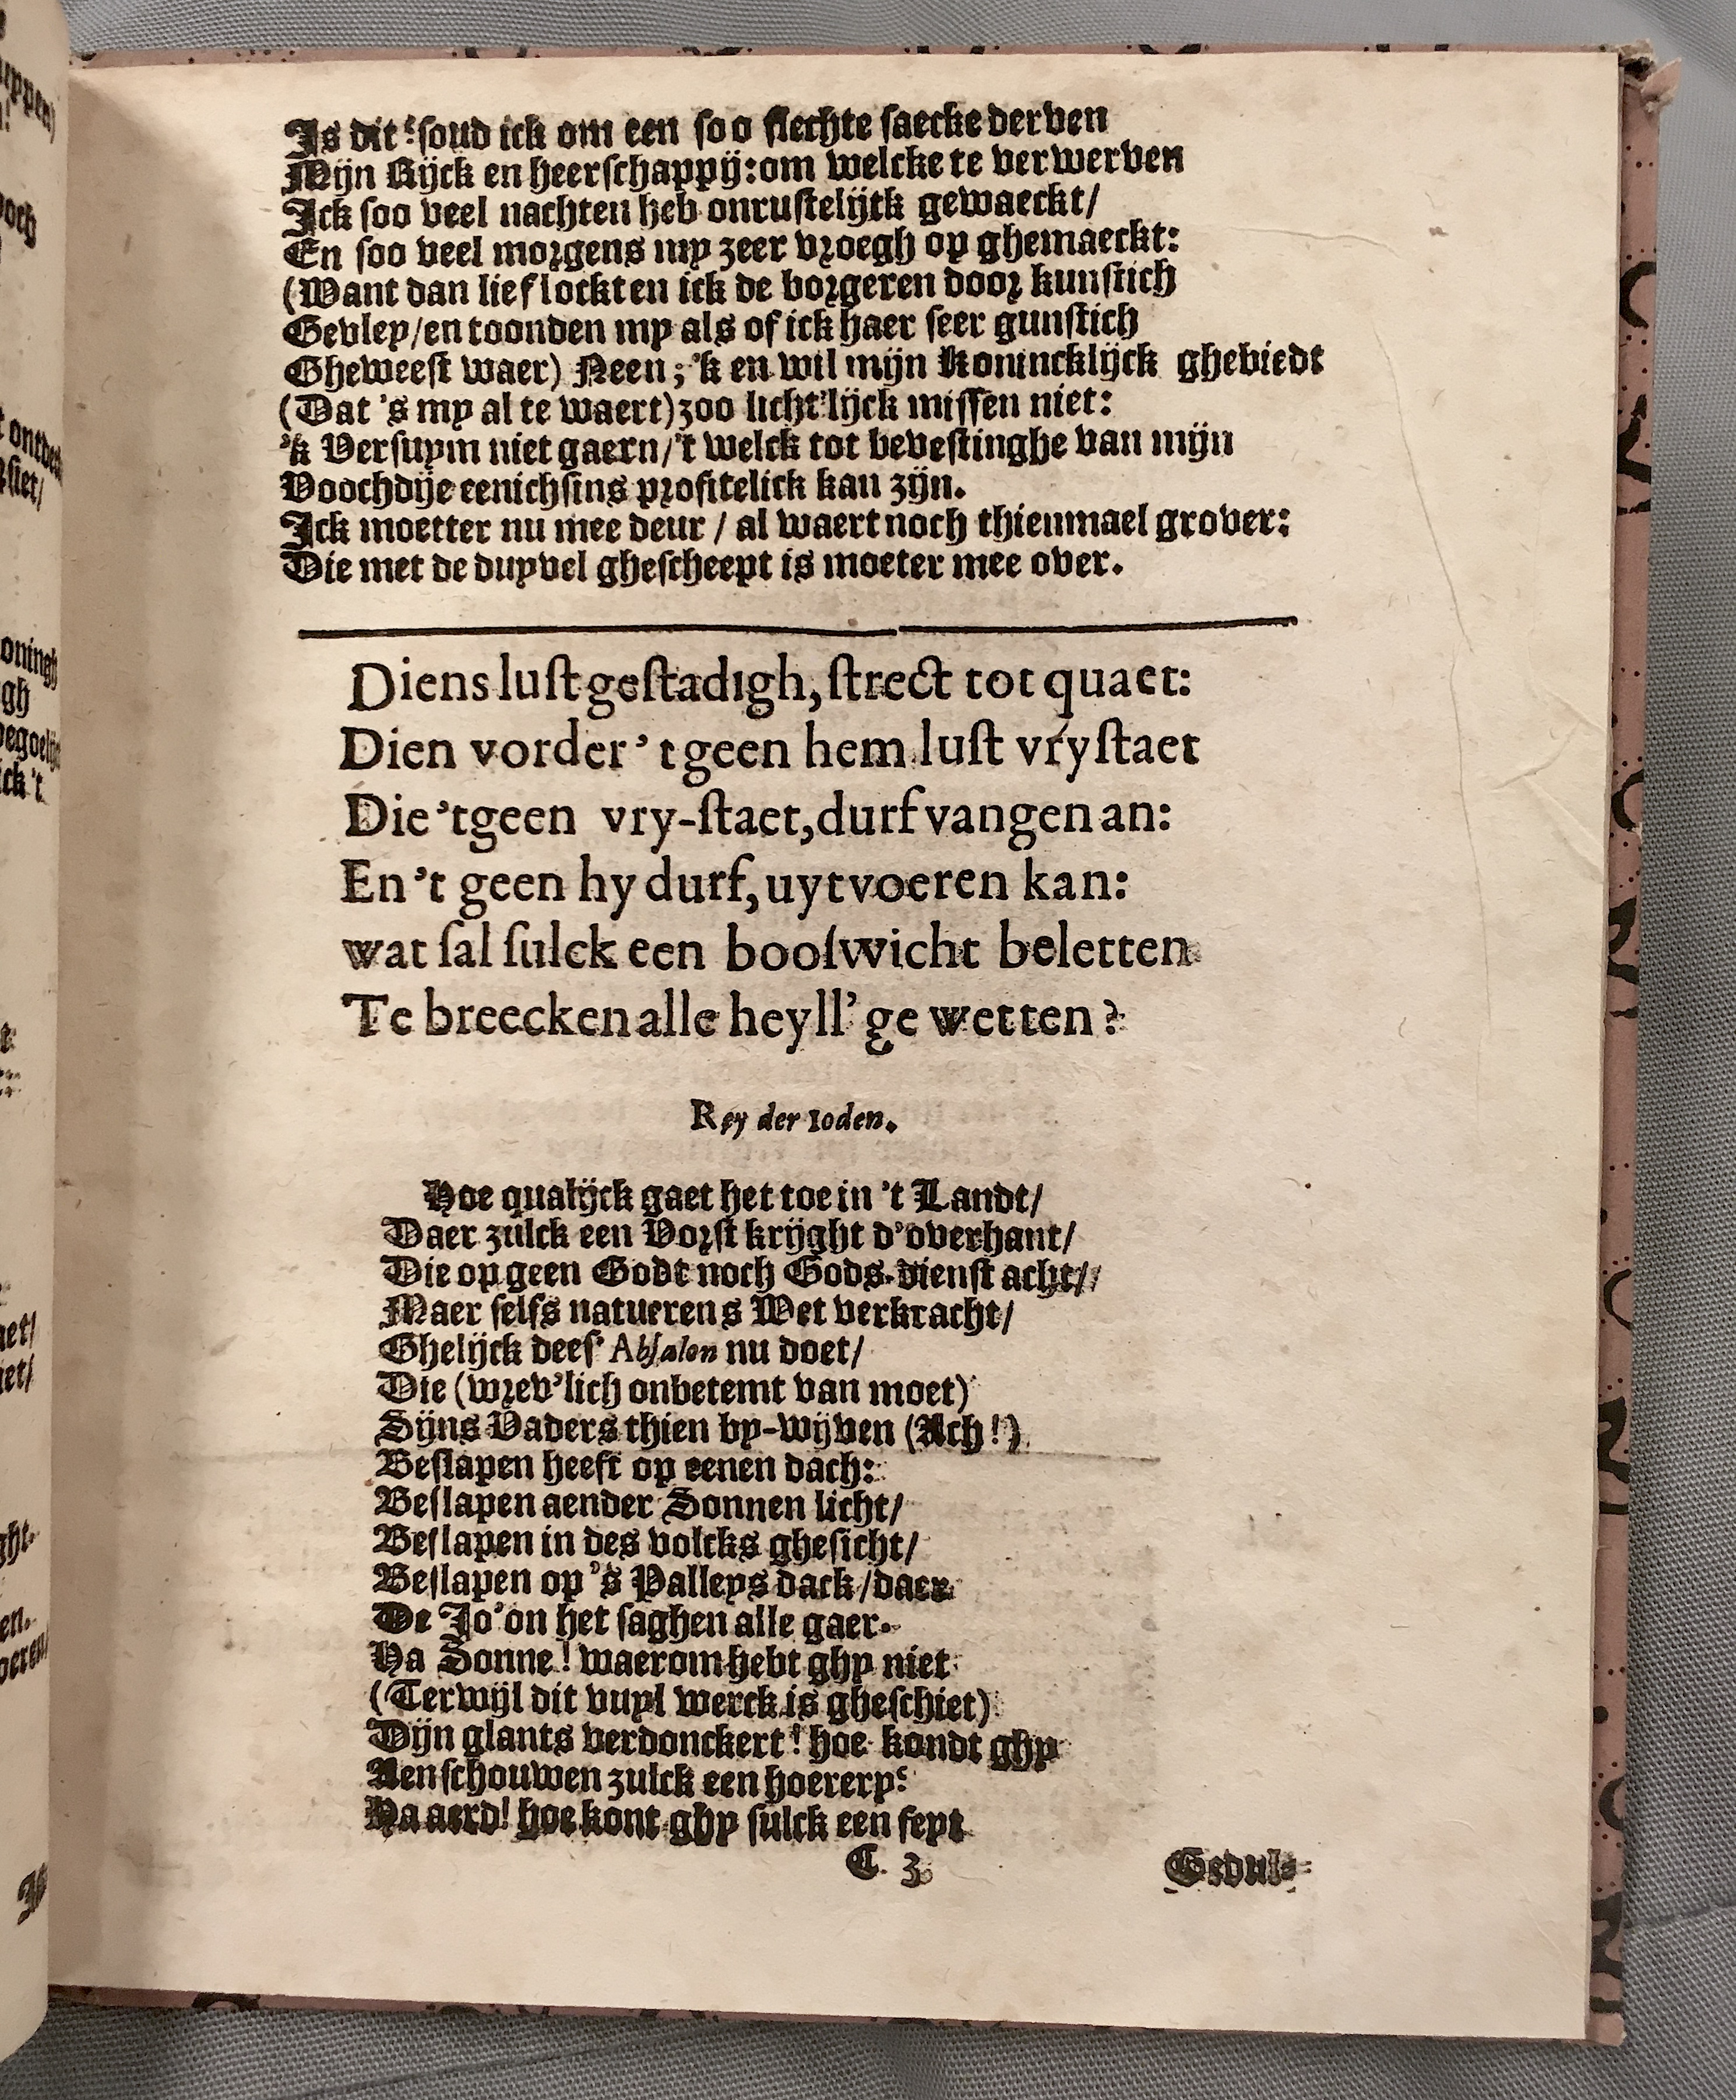 Is dit? soud ick om een soo slechte saecke derven
Mijn Rijck en heerschappij: om welcke te verwerven
Ick soo veel nachten heb onrustelijck gewaeckt/
En soo veel morgens my zeer vroegh op ghemaeckt:
(Want dan lief lockten ick de borgeren door kunstich
Gevley/en toonden my als of ick haer seer gunstich
Gheweest waer) Neen; 'k en wil mijn Konincklijck ghebiedt
(Dat 's my al te waert) zoo licht'lijck missen niet:
'k Versuym niet gaern/'t welck tot bevestinghe van mijn
Voochdije eenichsins profitelick kan zijn.
Ick moetter nu mee deur / al waert noch thienmael grover:
Die met de duyvel ghescheept is moeter mee over.
Diens lust gestadigh, strect tot quaet:
Dien vorder 't geen hem lust vry staet
Die 'tgeen vry-staet, durf vangen an:
En 't geen hy durf, uytvoeren kan:
wat sal sulck een booswicht beletten
Te breecken alle heyll' ge wetten?
Rey der Ioden.
Hoe qualijck gaet het toe in 't Landt/
Daer zulck een Vorst krijght d'overhant/
Die op geen Godt noch Gods-dienst acht/
Maer selfs natuerens Wet verkracht/
Ghelijck dees' Absalon nu doet/
Die (wrev'lich onbetemt van moet)
Sijns Vaders thien by-wijven (Ach!)
Beslapen heeft op eenen dach:
Beslapen aender Sonnen licht/
Beslapen in des volcks ghesicht/
Beslapen op 's Palleys dack/daer
De Jo'on het saghen alle gaer.
Ha Sonne! waerom hebt ghy niet
(Terwijl dit vuyl werck is gheschiet)
Dijn glants verdonckert! hoe kondt ghy
Aenschouwen zulck een hoerery?
Ha aerd! hoe kont ghy sulck een feyt
C. 3 Gedul-